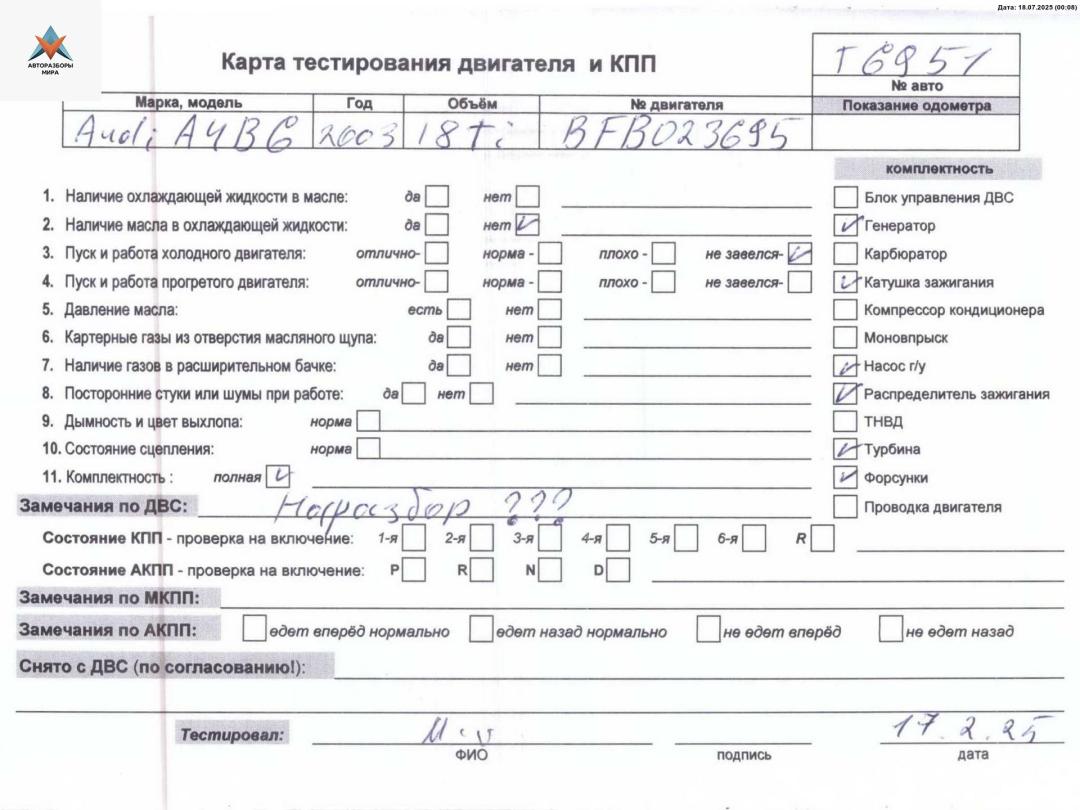 Дата: 18.07.2025 (00:08)
АВТОРАЗБОРЫ
МИРА
Карта тестирования двигателя и КПП
T6951
№ авто
Марка, модель Год Объём № двигателя Показание одометра
Audi A4B6 2003 18Ti BFB023695
комплектность
1. Наличие охлаждающей жидкости в масле: да нет
Блок управления ДВС
2. Наличие масла в охлаждающей жидкости: да нет
Генератор
3. Пуск и работа холодного двигателя: отлично- норма - плохо - не завелся-
Карбюратор
4. Пуск и работа прогретого двигателя: отлично- норма - плохо - не завелся-
Катушка зажигания
5. Давление масла: есть нет
Компрессор кондиционера
6. Картерные газы из отверстия масляного щупа: да нет
Моновпрыск
7. Наличие газов в расширительном бачке: да нет
Насос г/у
8. Посторонние стуки или шумы при работе: да нет
Распределитель зажигания
9. Дымность и цвет выхлопа: норма
ТНВД
10. Состояние сцепления: норма
Турбина
11. Комплектность : полная
Форсунки
Замечания по ДВС: На разбор ???
Проводка двигателя
Состояние КПП - проверка на включение: 1-я 2-я 3-я 4-я 5-я 6-я R
Состояние АКПП - проверка на включение: P R N D
Замечания по МКПП:
Замечания по АКПП: едет вперёд нормально едет назад нормально не едет вперёд не едет назад
Снято с ДВС (по согласованию!):
Тестировал: 17.2.25
ФИО подпись дата